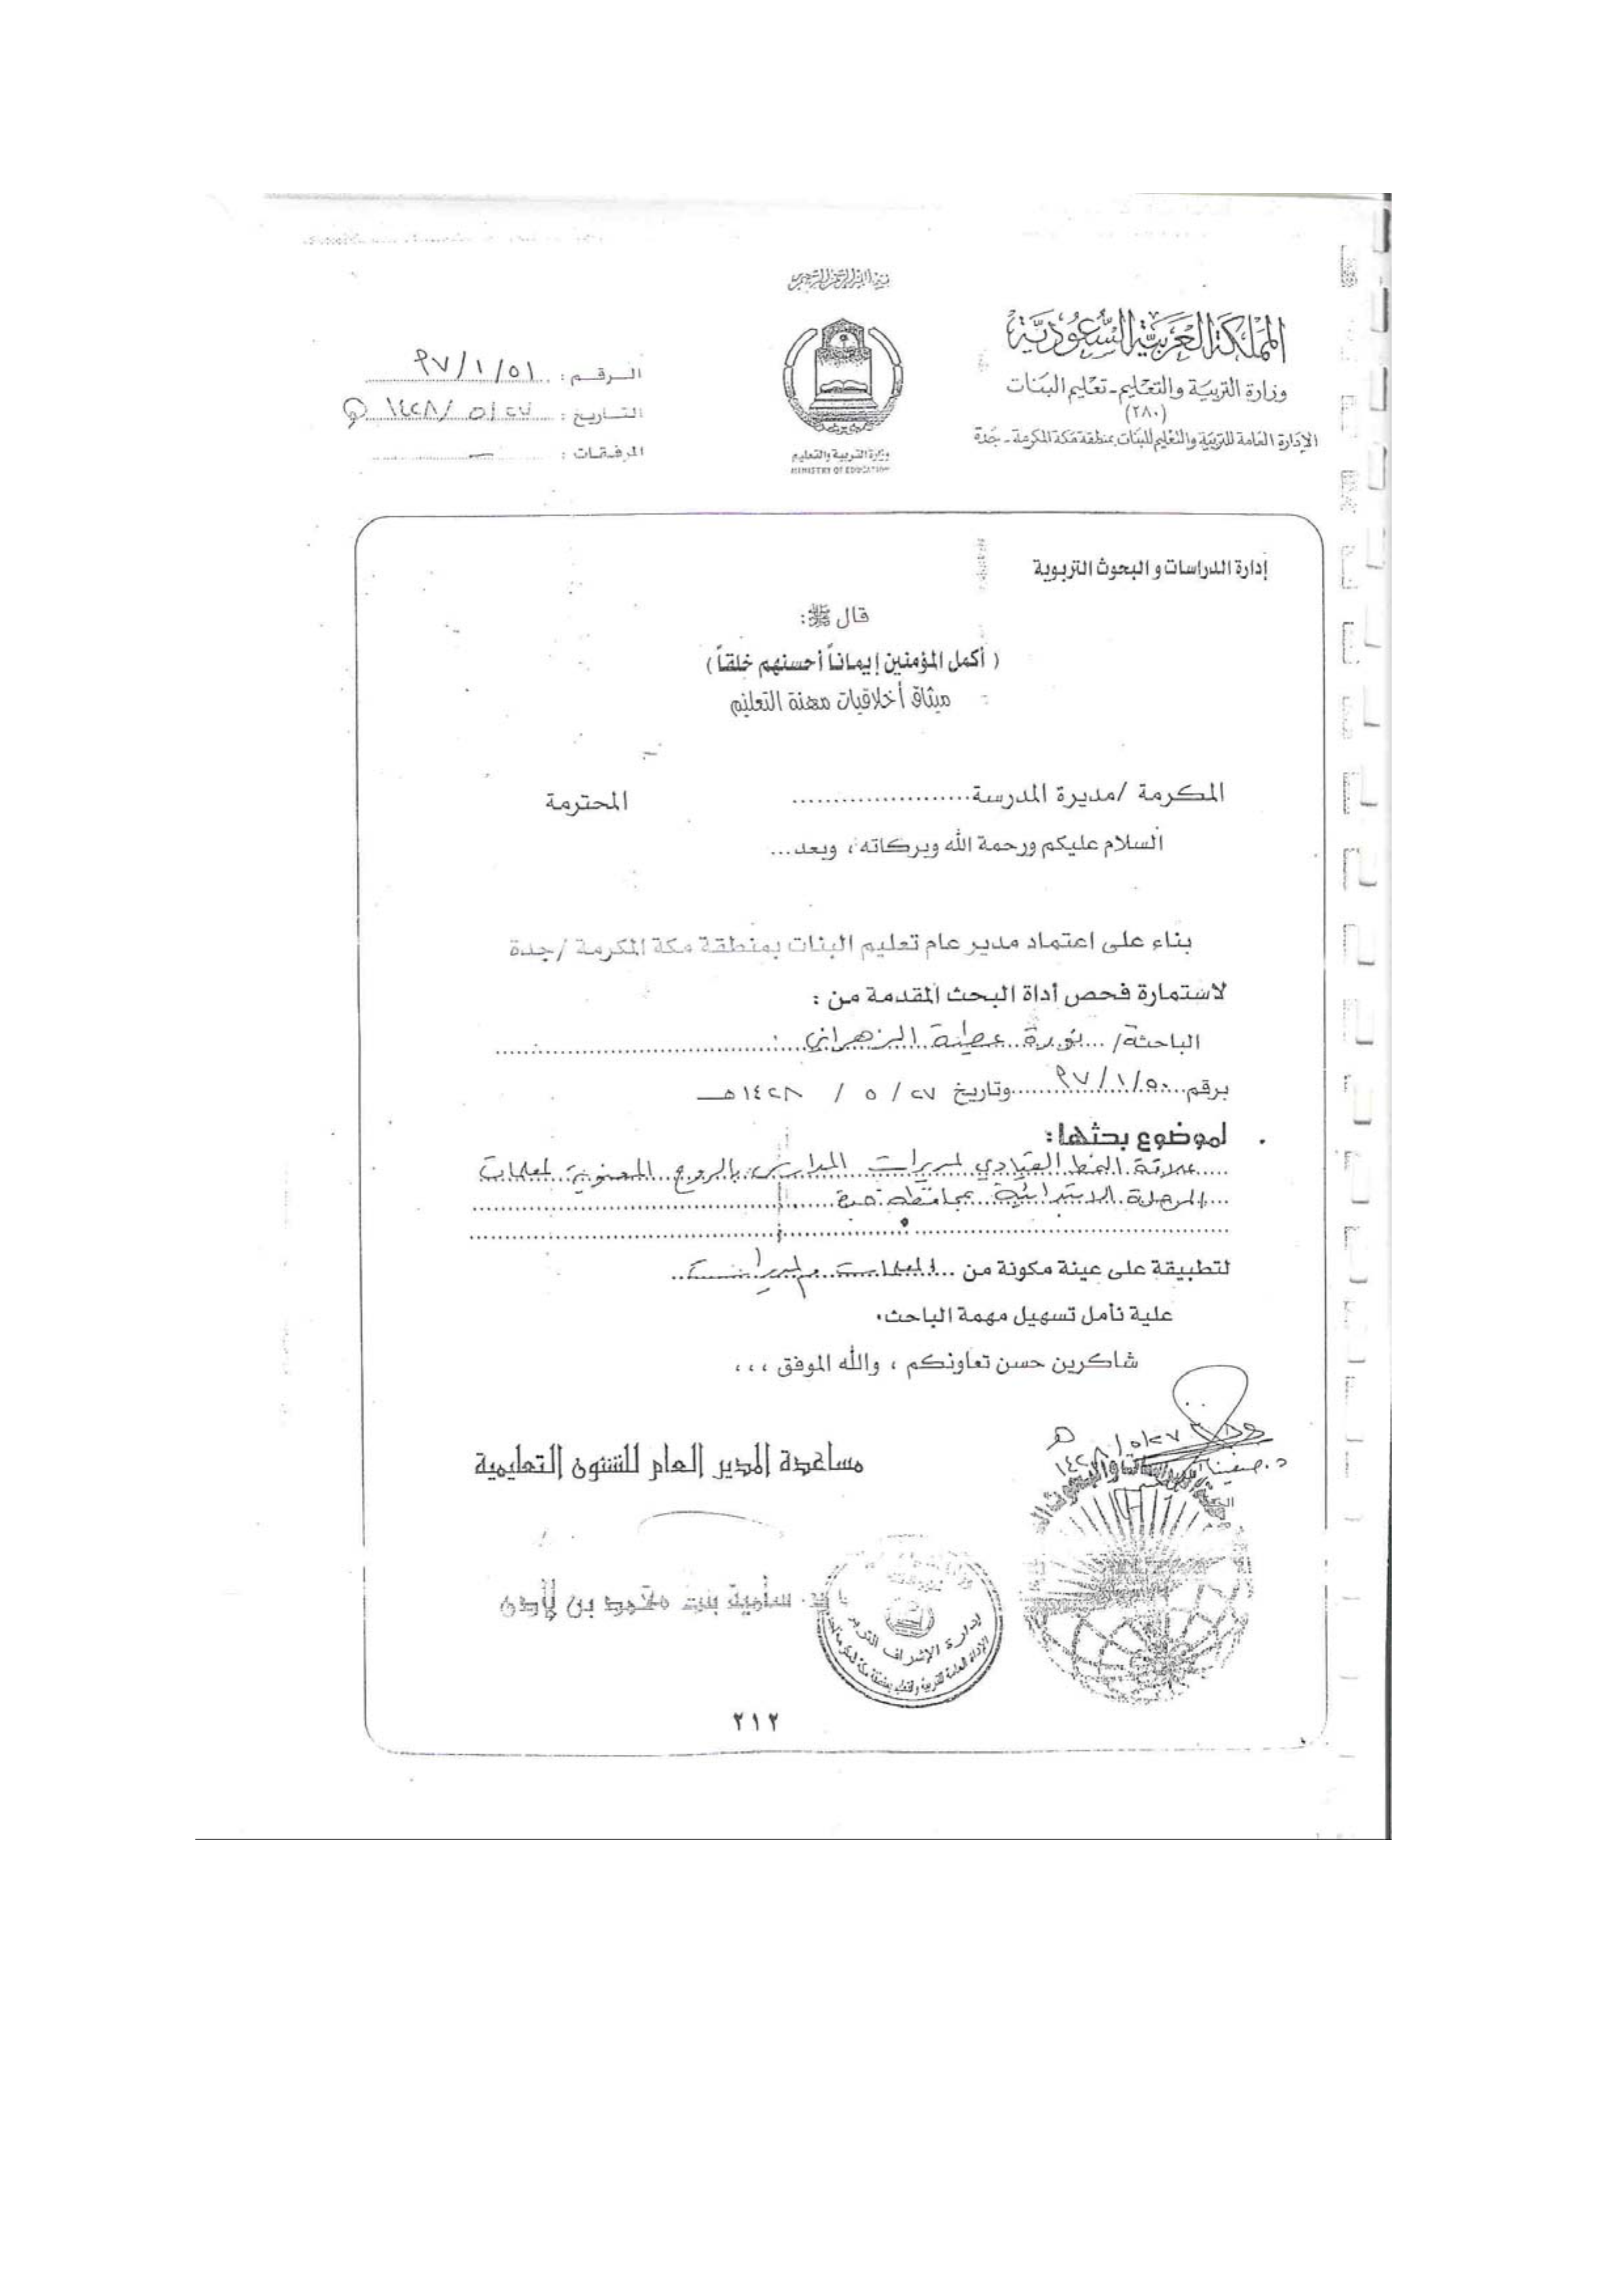 بسم الله الرحمن الرحيم
المملكة العربية السعودية
وزارة التربية والتعليم - تعليم البنات
(٢٨٠)
الإدارة العامة للتربية والتعليم للبنات بمنطقة مكة المكرمة - جدة
وزارة التربية والتعليم
MINISTRY OF EDUCATION
الرقم : ٩٧/١/٥١
التاريخ : ١٤٢٨/٥/٢٧ هـ
المرفقات : ـ
إدارة الدراسات و البحوث التربوية
قال ﷺ:
( أكمل المؤمنين إيماناً أحسنهم خلقاً )
ميثاق أخلاقيات مهنة التعليم
المكرمة /مديرة المدرسة..................... المحترمة
السلام عليكم ورحمة الله وبركاته ، وبعد...
بناء على اعتماد مدير عام تعليم البنات بمنطقة مكة المكرمة /جدة
لاستمارة فحص أداة البحث المقدمة من :
الباحثة/ ...نورة عطية الزهراني...
برقم....٩٧/١/٥٠....وتاريخ ٢٧ / ٥ / ١٤٢٨هـ
لموضوع بحثها:
علاقة النمط القيادي لمديرات المدارس بالروح المعنوية لمعلمات
المرحلة الابتدائية بمحافظة جدة
لتطبيقة على عينة مكونة من ...المعلمات والمديرات..
علية نأمل تسهيل مهمة الباحث.
شاكرين حسن تعاونكم ، والله الموفق ،،،
١٤٢٨/٥/٢٧ هـ
مساعدة المدير العام للشئون التعليمية
سامية بنت محمد بن لادن
إدارة الإشراف التربوي
الإدارة العامة للتربية والتعليم بمنطقة مكة المكرمة
٢١٢